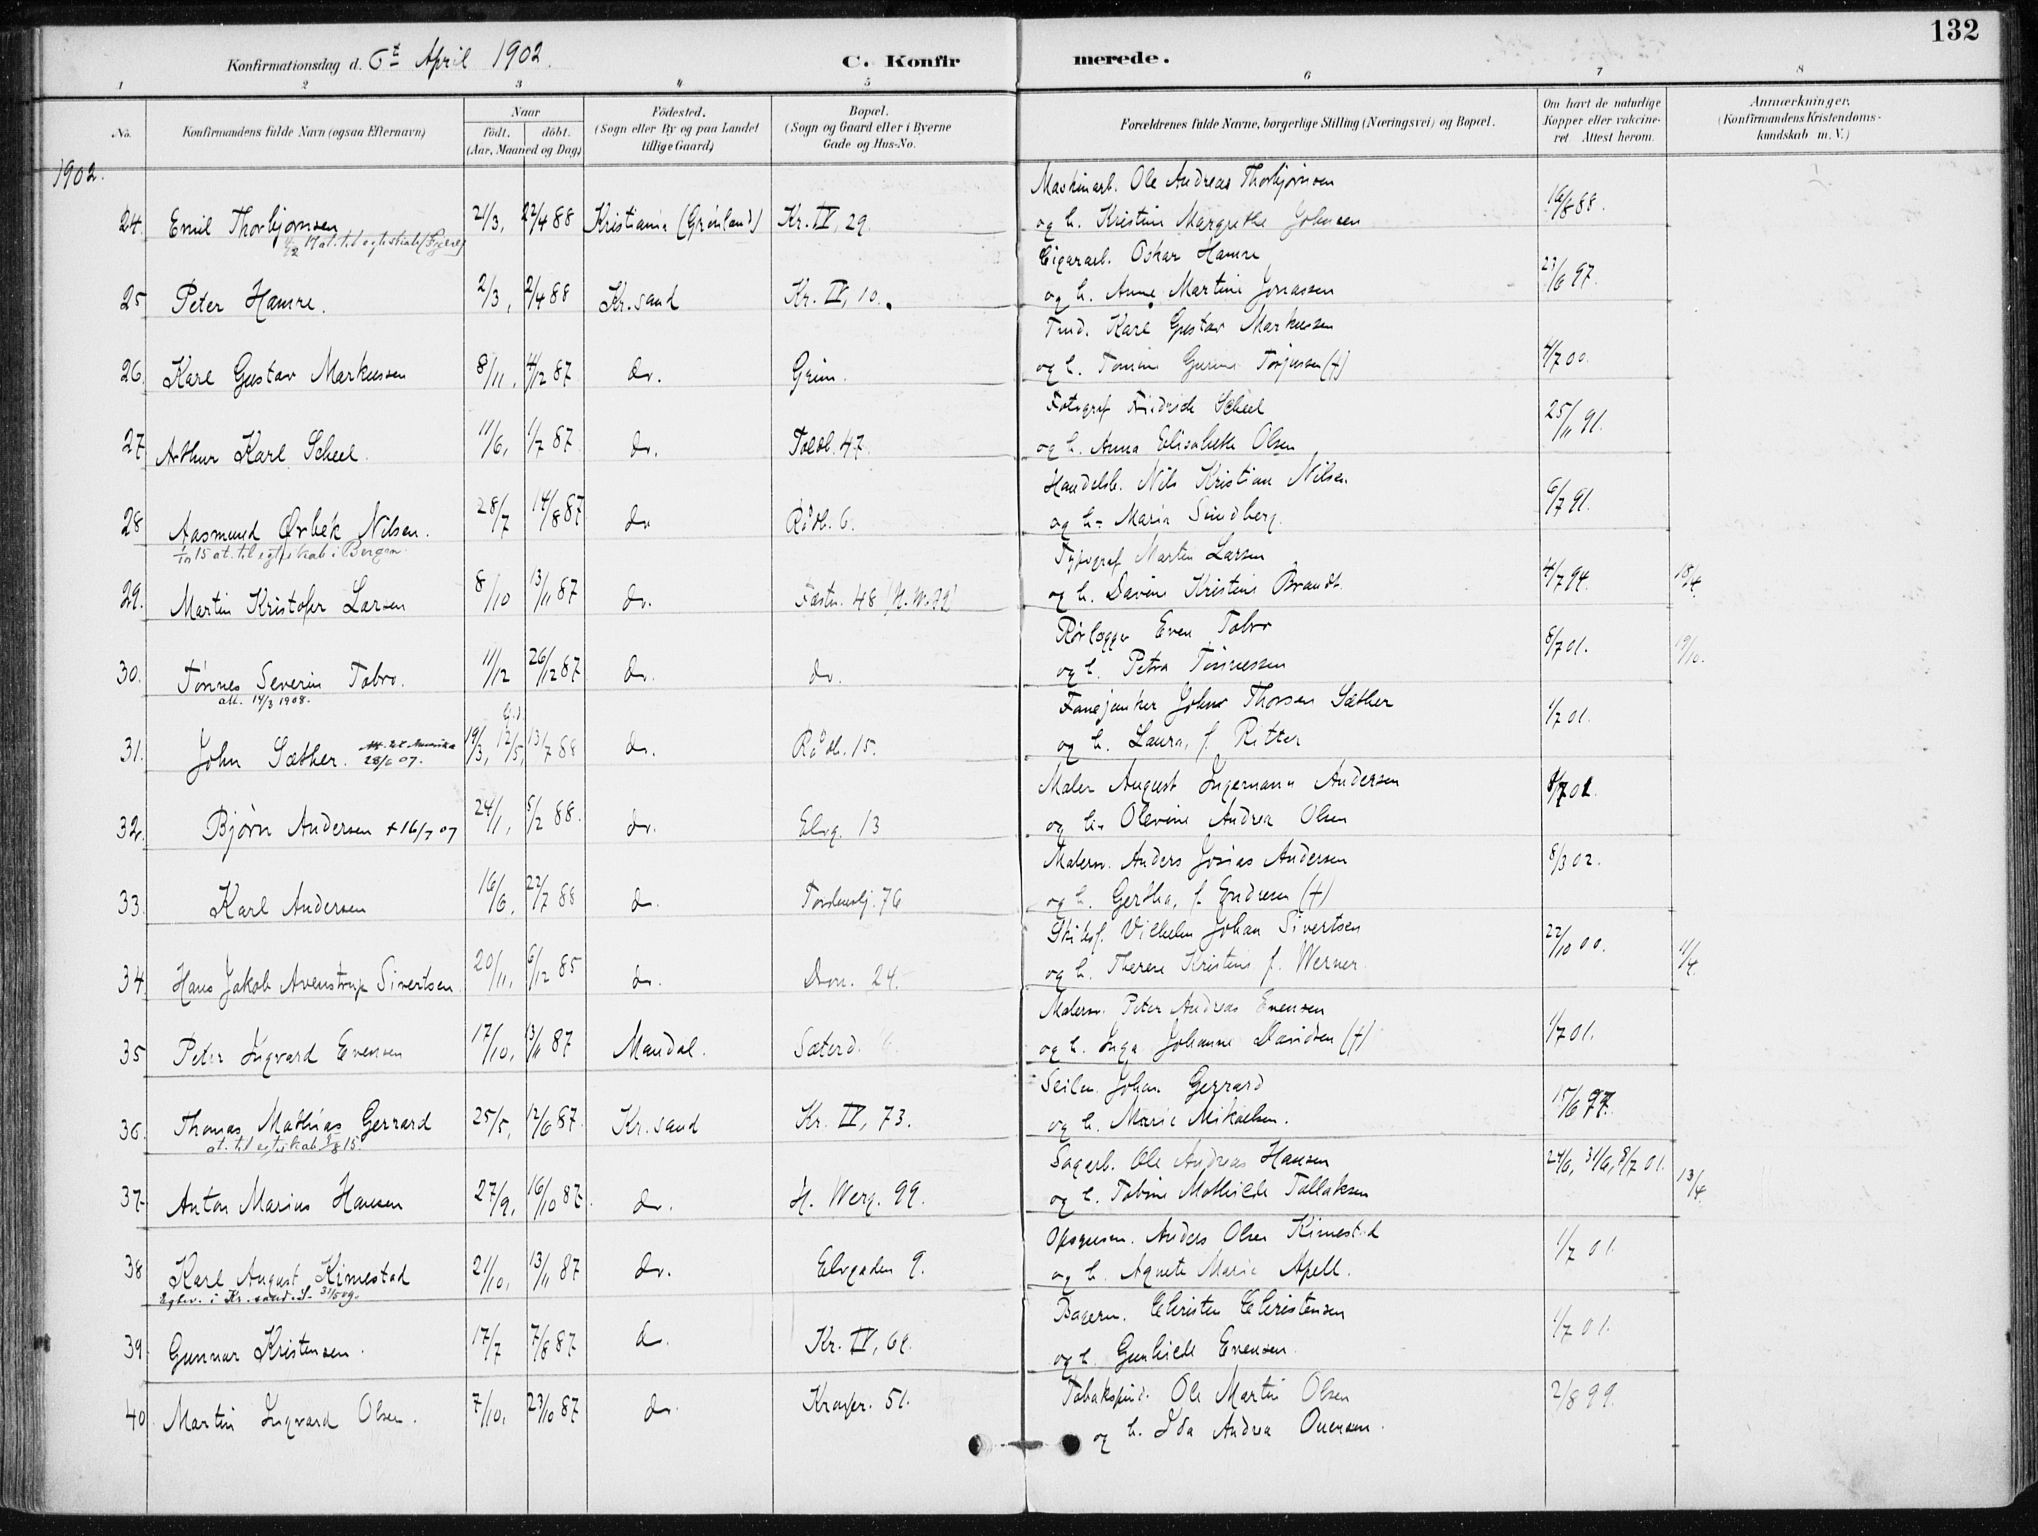 132
Konfirmationsdag d. 6t April 1902. C. Konfirmerede.
1 2 3 4 5 6 7 8
No. Konfirmandens fulde Navn (ogsaa Efternavn) Naar født. døbt. (Aar, Maaned og Dag) Fødested. (Sogn eller By og paa Landet tillige Gaard) Bopæl. (Sogn og Gaard eller i Byerne Gade og Hus-No. Forældrenes fulde Navne, borgerlige Stilling (Næringsvei) og Bopæl. Om havt de naturlige Kopper eller vakcineret Attest herom. Anmærkninger. (Konfirmandens Kristendomskundskab m. V.)
1902.
Maskinarb. Ole Andreas Thorbjørnsen
24. Emil Thorbjørnsen 21/3, 22/4 88 Kristiania (Grønland) Kr. IV, 29. og h. Kristine Margrethe Johnsen 16/8 88.
at. til egteskab
Cigararb. Oskar Hamre
25 Peter Hamre. 2/3, 2/4 88 Kr.sand Kr. IV, 10. og h. Anne Martine Jonassen 23/6 97.
Karl Gustav Markussen
26. Karl Gustav Markussen 8/11, 4/12 87 do. Grim. og h. Tomine Gurine Torjussen (+) 4/7 00.
Fotograf Fridrich Scheel
27 Arthur Karl Scheel. 11/6, 1/7 87 do. Toldb. 47. og h. Anna Elisabeth Olsen 25/11 91.
Handelsb. Nils Kristian Nilsen
28 Aasmund Ørbek Nilsen. 28/7 14/8 87 do Rådh. 6. og h. Maria Sundberg. 6/7 91.
1/10 15 at. til egteskab i Bergen.
Typograf Martin Larsen
29. Martin Kristofer Larsen 8/10 13/11 87 do. Fæstn. 48 og h. Davine Kristine Brandt 4/7 94. 18/4
Rørlægger Even Tobro
30. Tønnes Severin Tobro. 11/12 26/12 87 do. do. og h. Petra Tønnessen 8/7 01. 19/10.
att. 14/3 1908.
Fanejunker Johns Thorsen Sæther
31. John Sæther. att. til Amerika 28/6 07. 19/3, 12/5, 13/7 88 do. Rådh. 15. og h. Laura, f. Ritter 1/7 01.
Maler August Ingemann Andersen
32. Bjørn Andersen + 16/7 07 24/1, 5/2 88. do. Elvg. 13 og h. Olevine Andrea Olsen
Malerm. Anders Josias Andersen
33. Karl Andersen 16/6, 22/7 88 do. Tordenskj. 76 og h. Gertha, f. Endresen (+) 8/3 02.
Skibsf. Vilhelm Johan Sivertsen
34. Hans Jakob Avenstrup Sivertsen 20/11, 6/12 85 do. Dron. 24. og h. Therese Kristine f. Werner. 22/10 00. 11/4.
Malerm. Peter Andreas Evensen
35 Peter Ingvard Evensen 17/10, 13/11 87 Mandal. Sæterd. og h. Inga Johanne Davidsen (+) 1/7 01.
Seilm. Johan Gerrard
36. Thomas Mathias Gerrard 25/5, 12/6 87 Kr.sand Kr. IV, 73. og h. Marie Mikaelsen. 15/6 97.
at. til egteskab 15.
Sagarb. Ole Andreas Hansen
37. Anton Marius Hansen 27/9, 16/10 87. do. H. Werg. 99. og h. Tobine Mathilde Tallaksen 24/6, 31/6, 8/7 01. 13/4.
Opsynsm. Anders Olsen Kimestad
38 Karl August Kimestad 21/10, 13/11 87 do. Elvgaden 9. og h. Agnete Marie Apell. 1/7 01.
Egtev. i Kr.sand. 31/5 09.
Bagerm. Christen Christensen
39 Gunnar Kristensen. 17/7 7/8 87 do. Kr. IV, 69. og h. Gunhild Evensen. 1/7 01.
Tobakspind. Ole Martin Olsen
40 Martin Ingvard Olsen. 7/10, 23/10 87 do. Kronpr. 51. og h. Ida Andrea Ouensen. 2/8 99.